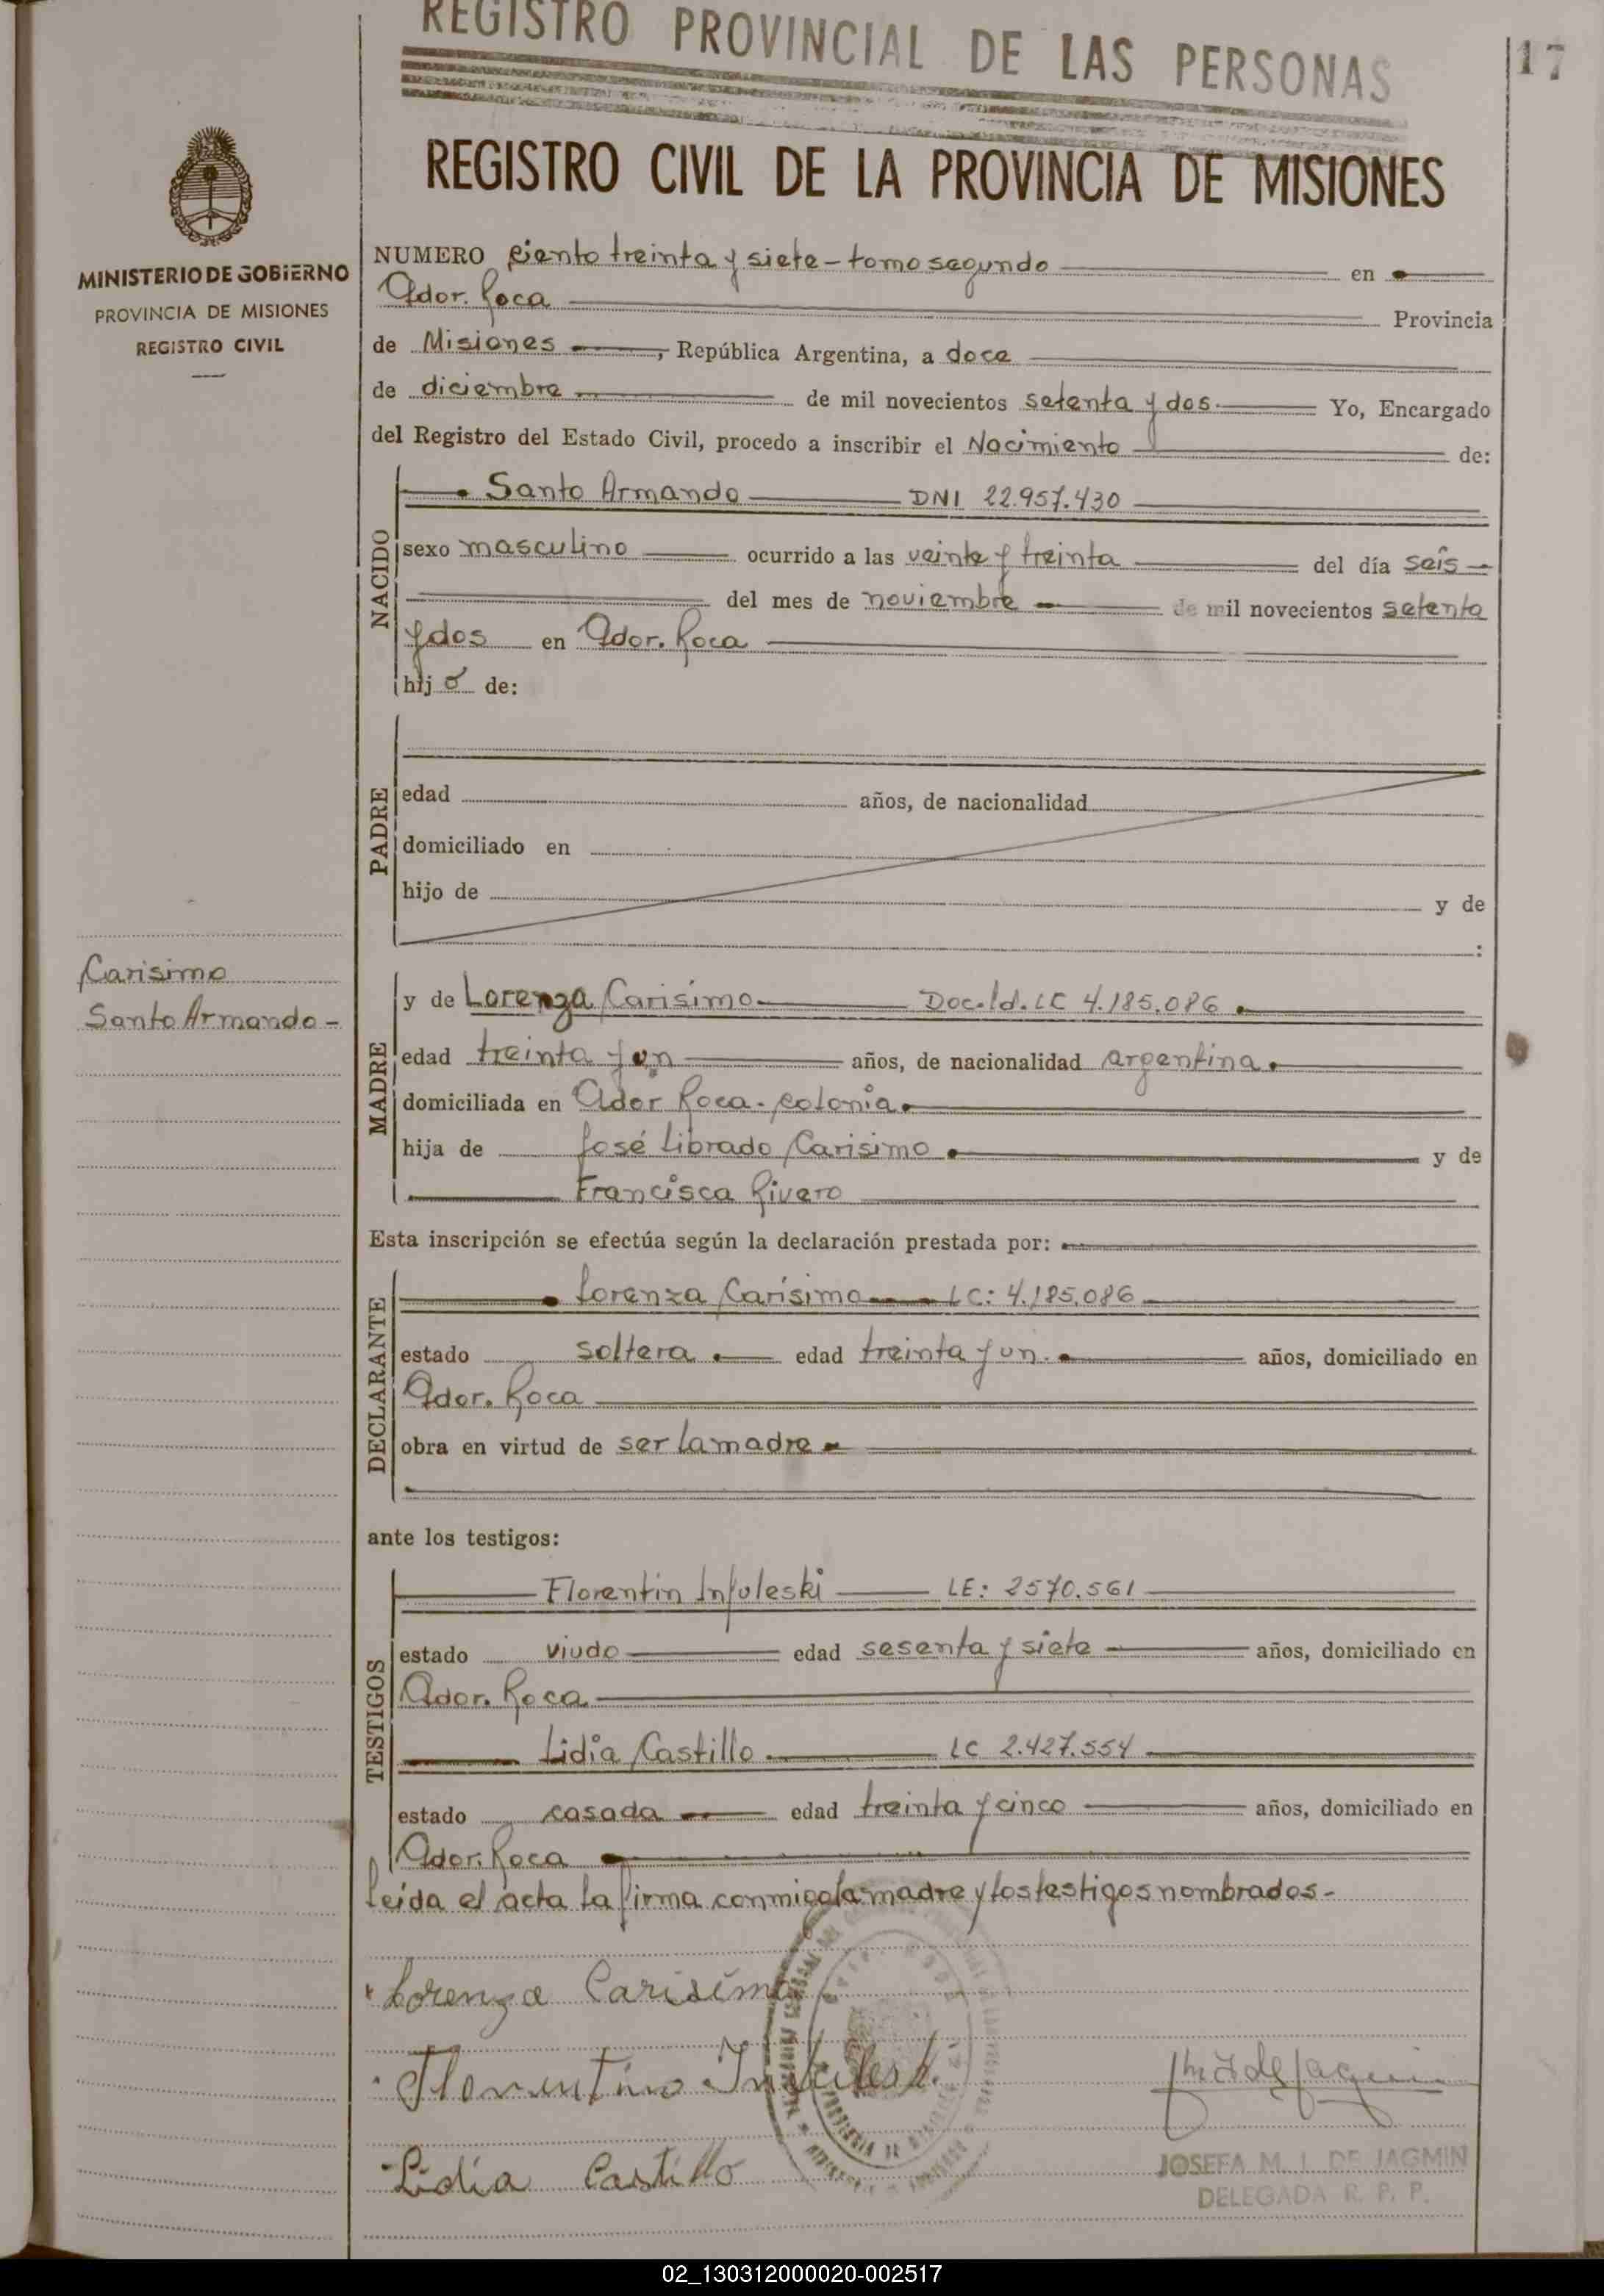 REGISTRO PROVINCIAL DE LAS PERSONAS
17
REGISTRO CIVIL DE LA PROVINCIA DE MISIONES
MINISTERIO DE GOBIERNO
PROVINCIA DE MISIONES
REGISTRO CIVIL
NUMERO ciento treinta y siete - tomo segundo en
Gdor. Roca Provincia
de Misiones, República Argentina, a doce
de diciembre de mil novecientos setenta y dos. Yo, Encargado
del Registro del Estado Civil, procedo a inscribir el Nacimiento de:
NACIDO
Santo Armando DNI 22.957.430
sexo masculino ocurrido a las veinte y treinta del día seis
del mes de noviembre de mil novecientos setenta
y dos en Gdor. Roca
hijo de:
PADRE
edad años, de nacionalidad
domiciliado en
hijo de y de
:
Carisimo
Santo Armando -
MADRE
y de Lorenza Carísimo Doc. Id. LC 4.185.086
edad treinta y un años, de nacionalidad argentina.
domiciliada en Gdor Roca - colonia.
hija de José Librado Carisimo y de
Francisca Rivero
Esta inscripción se efectúa según la declaración prestada por:
DECLARANTE
Lorenza Carísimo LC: 4.185.086
estado soltera edad treinta y un. años, domiciliado en
Gdor. Roca
obra en virtud de ser la madre
ante los testigos:
TESTIGOS
Florentin Infuleski LE: 2570.561
estado viudo edad sesenta y siete años, domiciliado en
Gdor. Roca
Lidia Castillo LC 2.427.554
estado casada edad treinta y cinco años, domiciliado en
Gdor. Roca
Leída el acta la firma conmigo la madre y los testigos nombrados -
Lorenza Carisimo
Florentino
Lidia Castillo
JOSEFA M. I. DE JAGMIN
DELEGADA R. P. P.
02_130312000020-002517